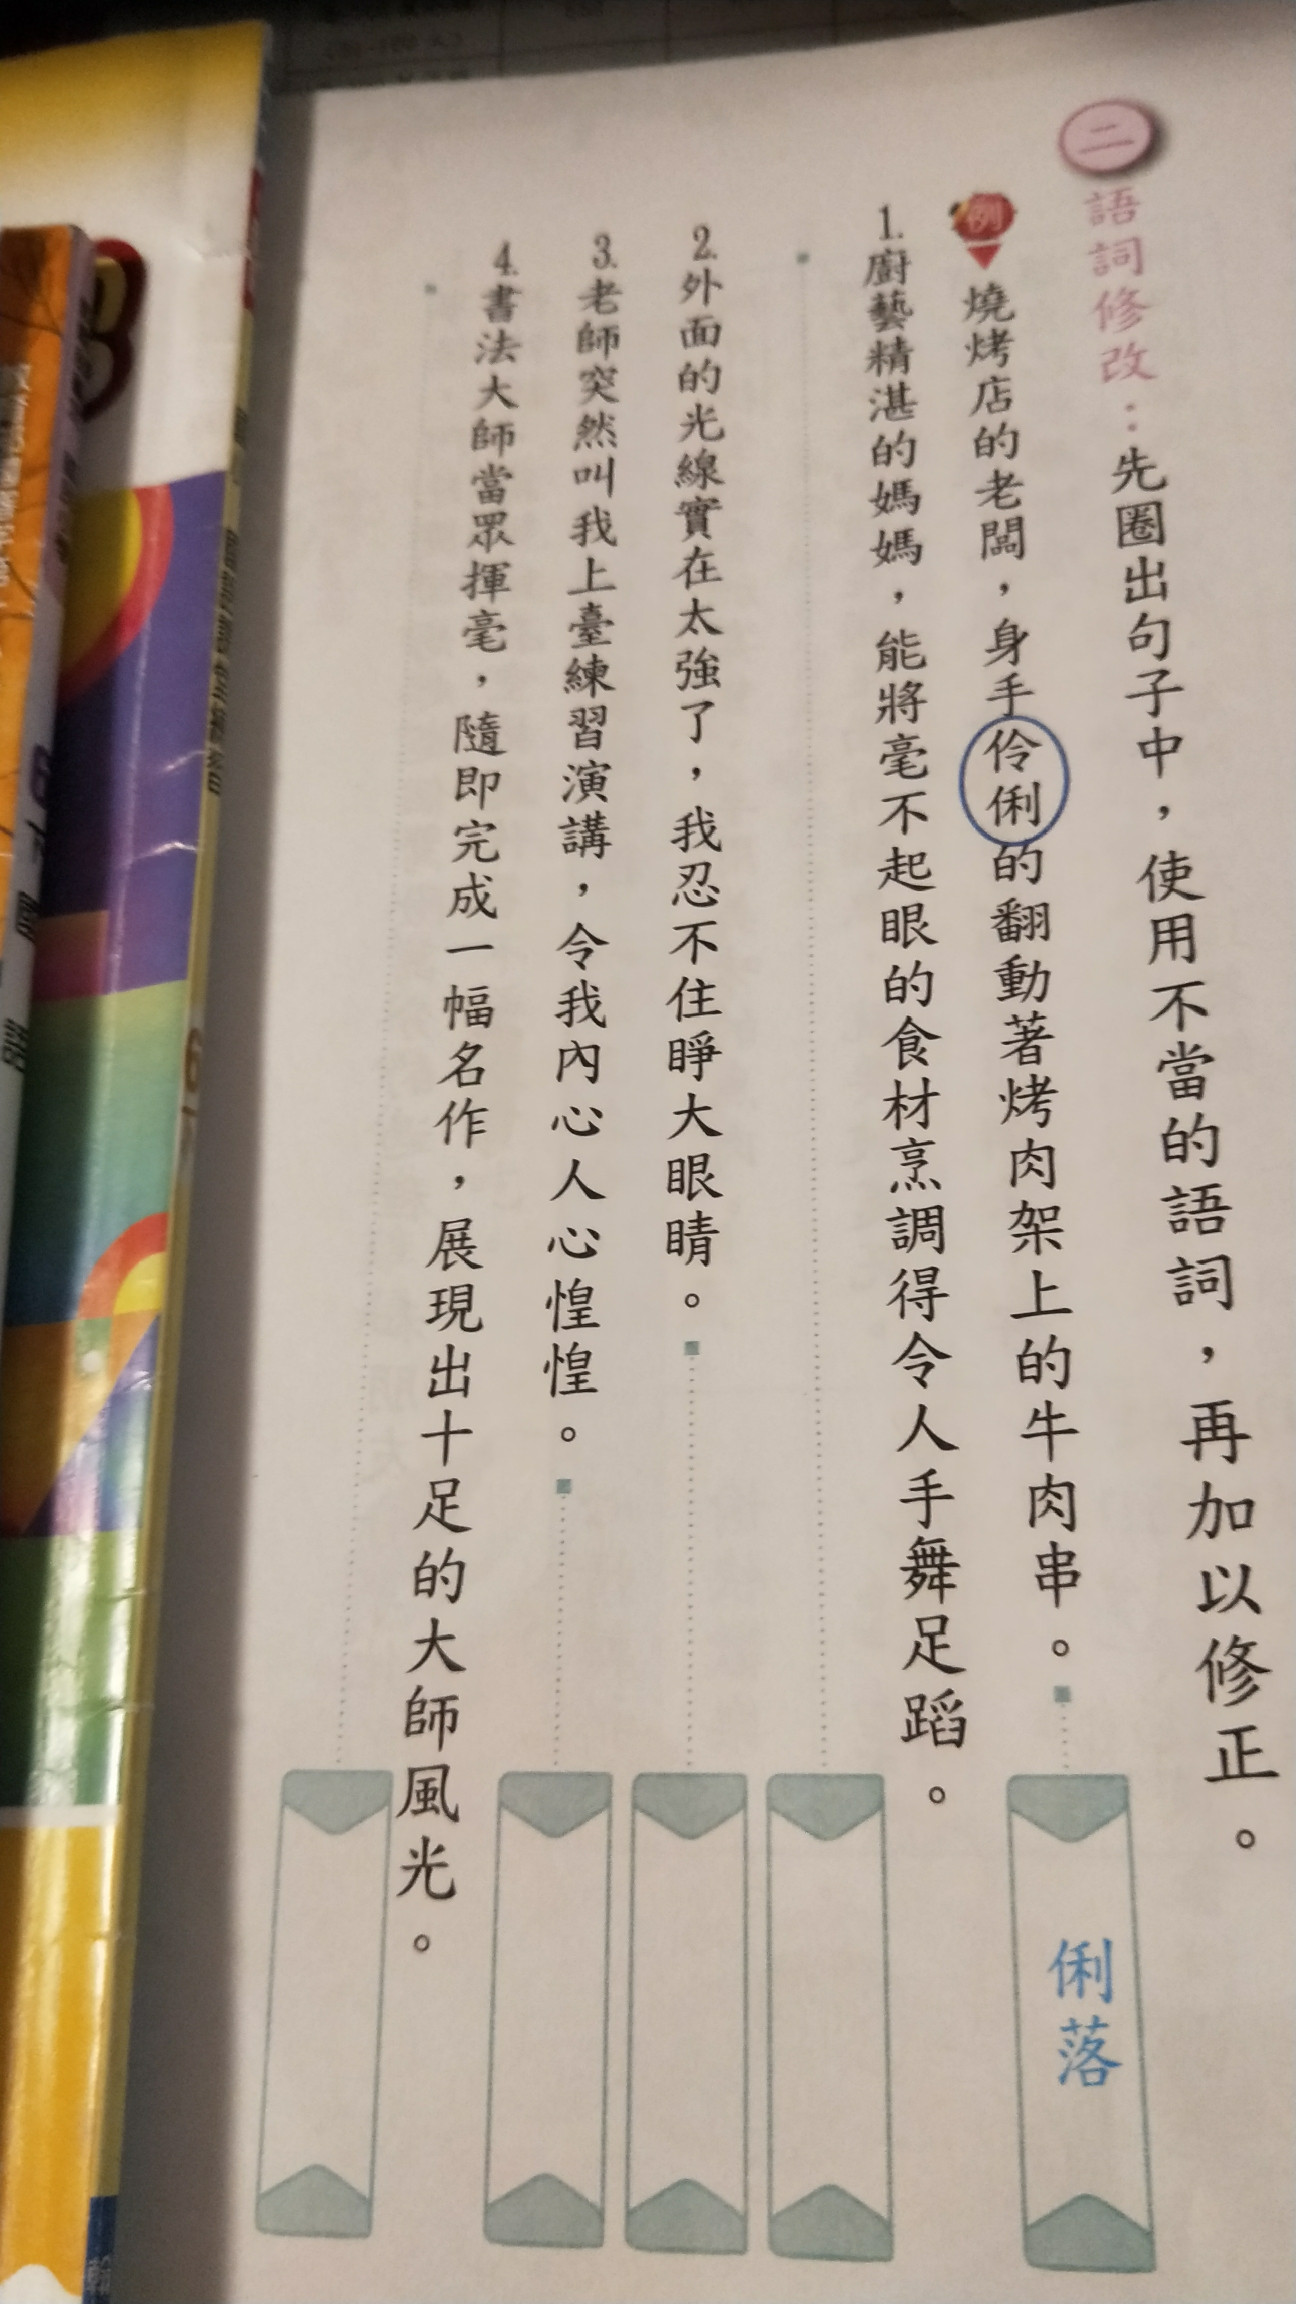 二 語詞修改：先圈出句子中，使用不當的語詞，再加以修正。
例 燒烤店的老闆，身手伶俐的翻動著烤肉架上的牛肉串。
俐落
1.廚藝精湛的媽媽，能將毫不起眼的食材烹調得令人手舞足蹈。
2.外面的光線實在太強了，我忍不住睜大眼睛。
3.老師突然叫我上臺練習演講，令我內心人心惶惶。
4.書法大師當眾揮毫，隨即完成一幅名作，展現出十足的大師風光。